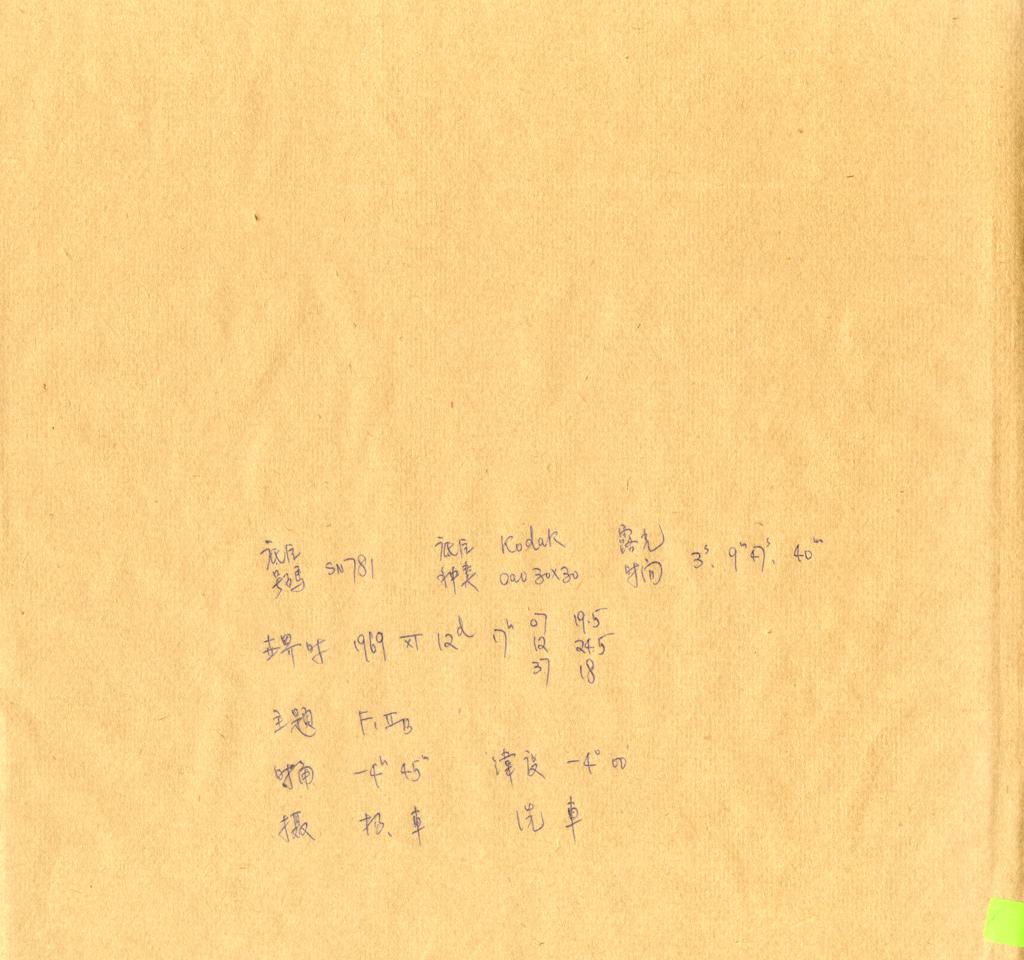 底片号码 SN781 底片种类 Kodak 0a0 30×30 露光时间 3ˢ. 9ᵐ47ˢ. 40ᵐ
世界时 1969 XI 12ᵈ 17ʰ 07 19.5
12 24.5
37 18
主题 F, IIB
时角 -4ʰ 45ᵐ 纬度 -4° 00'
摄 杨、车 洗 车